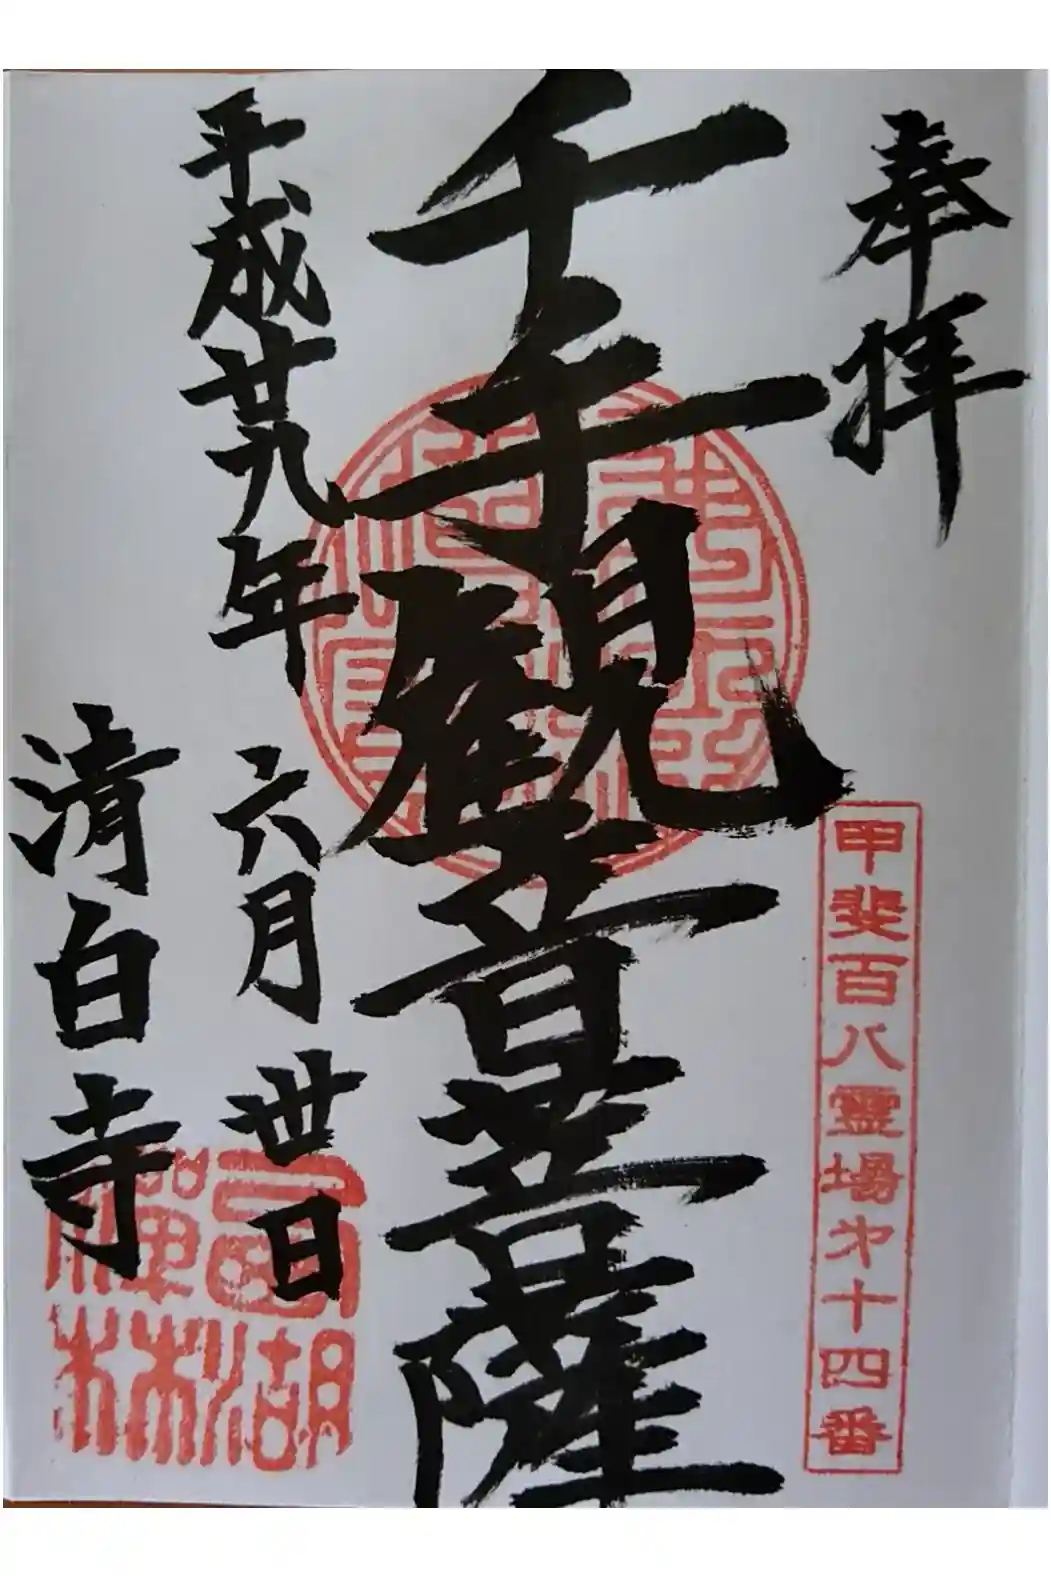 奉拝
甲斐百八霊場第十四番
千手觀音菩薩
平成廿九年
六月丗日
清白寺